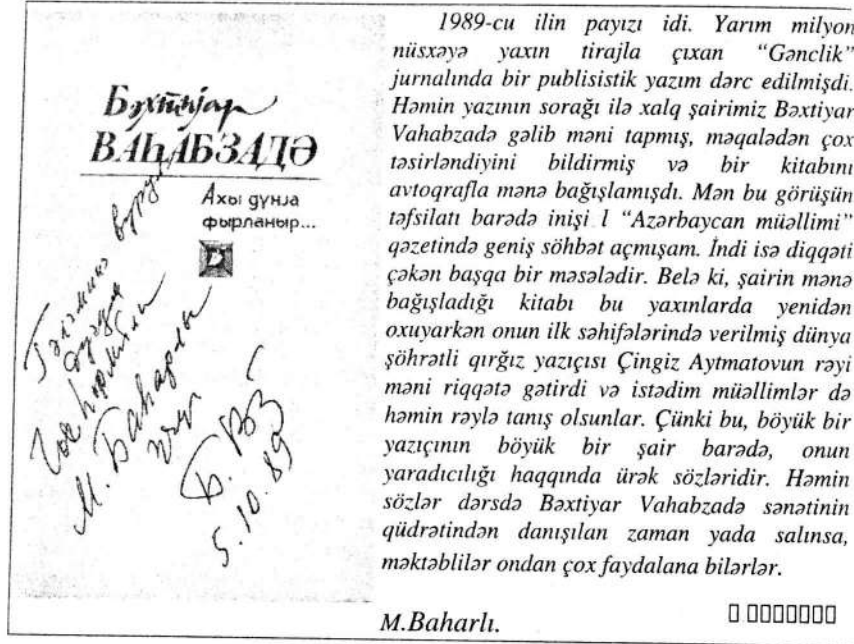 Бәхтијар
ВАҺАБЗАДӘ
Ахы дүнја
фырланыр...
М. Баһарлы
Б. ВЗ
5.10.89
1989-cu ilin payızı idi. Yarım milyon
nüsxəyə yaxın tirajla çıxan “Gənclik”
jurnalında bir publisistik yazım dərc edilmişdi.
Həmin yazının sorağı ilə xalq şairimiz Bəxtiyar
Vahabzadə gəlib məni tapmış, məqalədən çox
təsirləndiyini bildirmiş və bir kitabını
avtoqrafla mənə bağışlamışdı. Mən bu görüşün
təfsilatı barədə inişi l “Azərbaycan müəllimi”
qəzetində geniş söhbət açmışam. İndi isə diqqəti
çəkən başqa bir məsələdir. Belə ki, şairin mənə
bağışladığı kitabı bu yaxınlarda yenidən
oxuyarkən onun ilk səhifələrində verilmiş dünya
şöhrətli qırğız yazıçısı Çingiz Aytmatovun rəyi
məni riqqətə gətirdi və istədim müəllimlər də
həmin rəylə tanış olsunlar. Çünki bu, böyük bir
yazıçının böyük bir şair barədə, onun
yaradıcılığı haqqında ürək sözləridir. Həmin
sözlər dərsdə Bəxtiyar Vahabzadə sənətinin
qüdrətindən danışılan zaman yada salınsa,
məktəblilər ondan çox faydalana bilərlər.
M.Baharlı.